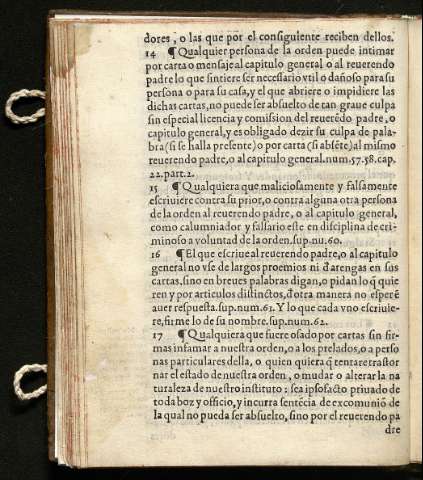 dores, o las que por el consiguiente reciben dellos.
14 ¶Qualquier persona de la orden puede intimar
por carta o mensaje al capitulo general o al reuerendo
padre lo que sintiere ser necessario vtil o dañoso para su
persona o para su casa, y el que abriere o impidiere las
dichas cartas, no puede ser absuelto de tan graue culpa
sin especial licencia y comission del reuerẽdo padre, o
capitulo general, y es obligado dezir su culpa de pala-
bra (si se halla presente) o por carta (si absẽte) al mismo
reuerendo padre, o al capitulo general. num. 57. 58. cap.
22. part. 2.
15 ¶Qualquiera que maliciosamente y falsamente
escriuiere contra su prior, o contra alguna otra persona
de la orden al reuerendo padre, o al capitulo general,
como calumniador y falsario este en disciplina de cri-
minoso a voluntad de la orden. sup. nu. 60.
16 ¶El que escriue al reuerendo padre, o al capitulo
general no vse de largos proemios ni đarengas en sus
cartas, sino en breues palabras digan, o pidan lo q̃ quie
ren y por articulos distinctos, đotra manera no esperẽ
auer respuesta. sup. num. 61. Y lo que cada vno escriuie-
re, firme lo de su nombre. sup. num. 62.
17 ¶Qualquiera que fuere osado por cartas sin fir-
mas infamar a nuestra orden, o a los prelados, o a perso
nas particulares della, o quien quiera q̃ tentare trastor
nar el estado de nuestra orden, o mudar o alterar la na
turaleza de nuestro instituto: sea ipsofacto priuado de
toda boz y officio, y incurra sentẽcia de excomuniõ de
la qual no pueda ser absuelto, sino por el reuerendo pa
dre